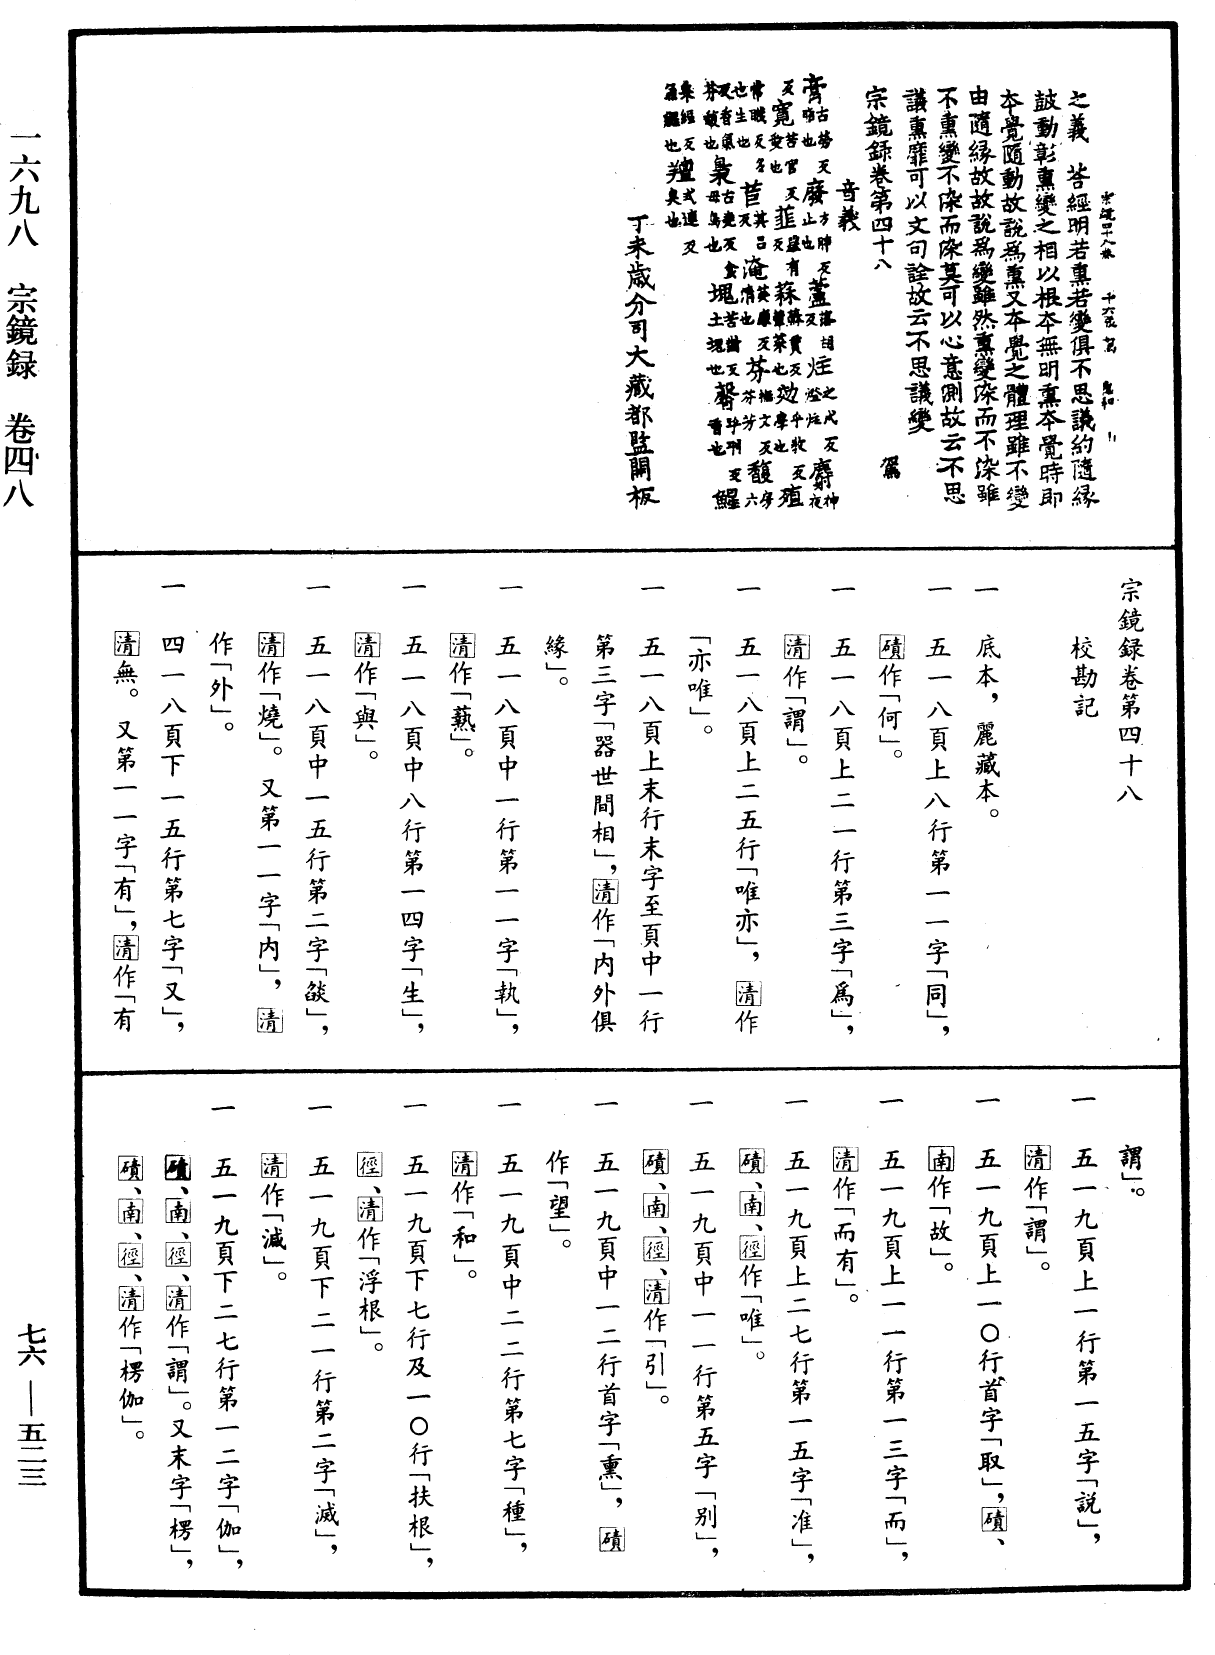 之義 荅經明若熏若變俱不思議約隨緣
鼓動彰熏變之相以根本無明熏本覺時即
本覺隨動故說爲熏又本覺之體理雖不變
由隨緣故故說爲變雖然熏變染而不染雖
不熏變不染而染莫可以心意測故云不思
議熏靡可以文句詮故云不思議變
宗鏡録卷第四十八
音義
丁未歲分司大藏都監開板
宗鏡録卷第四十八
校勘記
一 底本，麗藏本。
一 五一八頁上八行第一一字「同」，
磧作「何」。
一 五一八頁上二一行第三字「爲」，
清作「謂」。
一 五一八頁上二五行「唯亦」，清作
「亦唯」。
一 五一八頁上末行末字至頁中一行
第三字「器世間相」，清作「内外俱
緣」。
一 五一八頁中一行第一一字「執」，
清作「爇」。
一 五一八頁中八行第一四字「生」，
清作「與」。
一 五一八頁中一五行第二字「燄」，
清作「燒」。又第一一字「内」，清
作「外」。
一 四一八頁下一五行第七字「又」，
清無。又第一一字「有」，清作「有
謂」。
一 五一九頁上一行第一五字「説」，
清作「謂」。
一 五一九頁上一〇行首字「取」，磧、
南作「故」。
一 五一九頁上一一行第一三字「而」，
清作「而有」。
一 五一九頁上二七行第一五字「准」，
磧、南、徑作「唯」。
一 五一九頁中一一行第五字「別」，
磧、南、徑、清作「引」。
一 五一九頁中一二行首字「熏」，磧
作「望」。
一 五一九頁中二二行第七字「種」，
清作「和」。
一 五一九頁下七行及一〇行「扶根」，
徑、清作「浮根」。
一 五一九頁下二一行第二字「滅」，
清作「減」。
一 五一九頁下二七行第一二字「伽」，
磧、南、徑、清作「謂」。又末字「楞」，
磧、南、徑、清作「楞伽」。
一六九八 宗鏡録 卷四八
七六—五二三